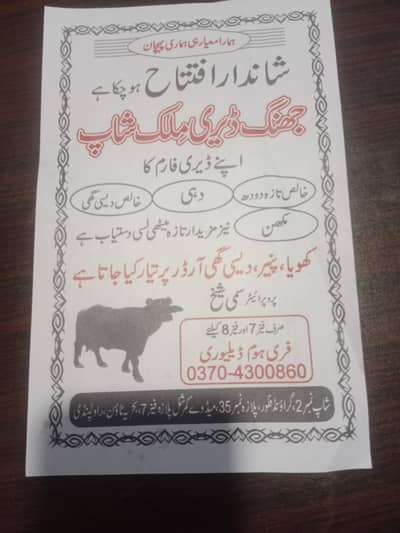 ہمارا معیار ہی ہماری پہچان
شاندار افتتاح ہو چکا ہے
جھنگ ڈیری ملک شاپ
اپنے ڈیری فارم کا
خالص تازہ دودھ
دہی
خالص دیسی گھی
مکھن
نیز مزیدار تازہ میٹھی لسی دستیاب ہے
کھویا، پنیر، دیسی گھی آرڈر پر تیار کیا جاتا ہے
پروپرائیٹر سمی شیخ
صرف فیز 7 اور فیز 8 کیلئے
فری ہوم ڈیلیوری
0370-4300860
شاپ نمبر 2، گراؤنڈ فلور، پلازہ نمبر 35، میڈوے کمرشل پلازہ فیز 7، بحریہ ٹاؤن، راولپنڈی